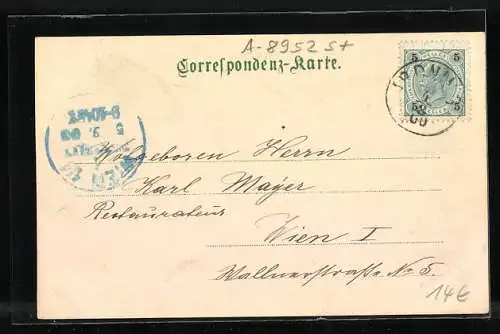 A-8952 St
Correspondenz-Karte.
5 5
5 5
Wolgeboren Herrn
Karl Mayer
Restaurateur
Wien I
Wallnerstraße No 5.
14€